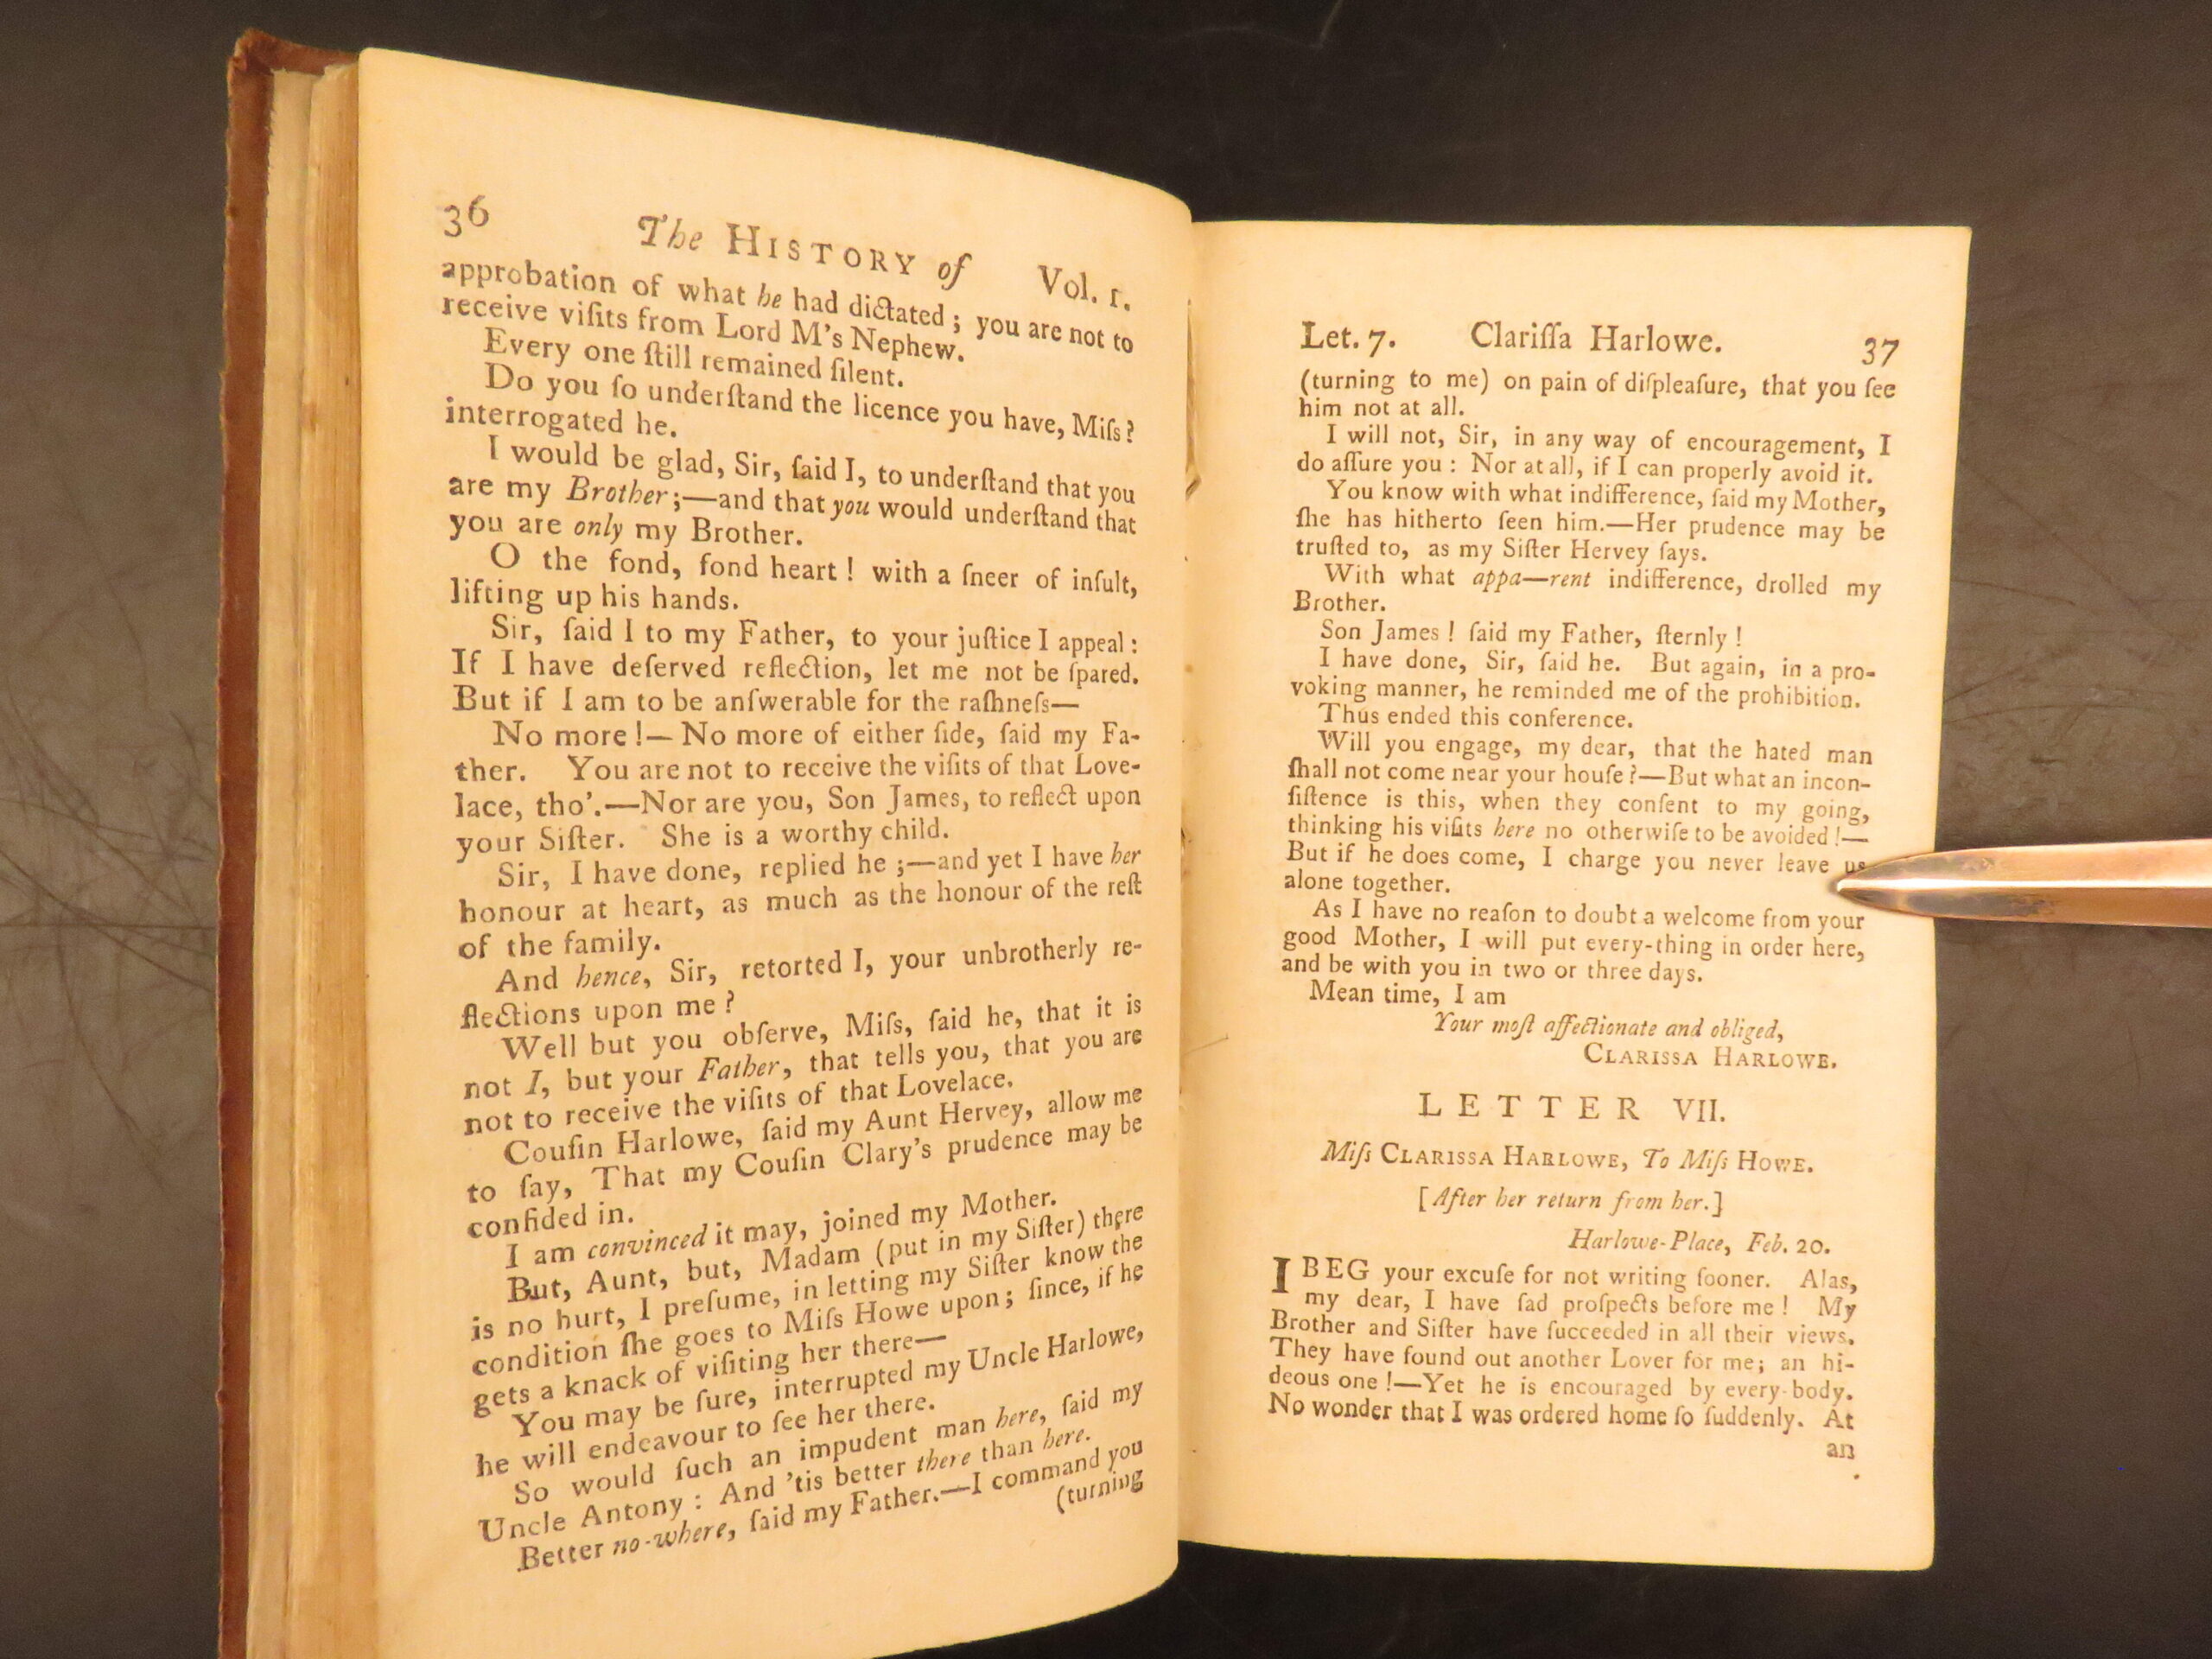 36 The HISTORY of Vol. 1.
approbation of what he had dictated; you are not to
receive viſits from Lord M's Nephew.
Every one ſtill remained ſilent.
Do you ſo underſtand the licence you have, Miſs?
interrogated he.
I would be glad, Sir, ſaid I, to underſtand that you
are my Brother;—and that you would underſtand that
you are only my Brother.
O the fond, fond heart! with a ſneer of inſult,
lifting up his hands.
Sir, ſaid I to my Father, to your juſtice I appeal:
If I have deſerved reflection, let me not be ſpared.
But if I am to be anſwerable for the raſhneſs—
No more!—No more of either ſide, ſaid my Fa-
ther. You are not to receive the viſits of that Love-
lace, tho'.—Nor are you, Son James, to reflect upon
your Siſter. She is a worthy child.
Sir, I have done, replied he;—and yet I have her
honour at heart, as much as the honour of the reſt
of the family.
And hence, Sir, retorted I, your unbrotherly re-
flections upon me?
Well but you obſerve, Miſs, ſaid he, that it is
not I, but your Father, that tells you, that you are
not to receive the viſits of that Lovelace.
Couſin Harlowe, ſaid my Aunt Hervey, allow me
to ſay, That my Couſin Clary's prudence may be
confided in.
I am convinced it may, joined my Mother.
But, Aunt, but, Madam (put in my Siſter) there
is no hurt, I preſume, in letting my Siſter know the
condition ſhe goes to Miſs Howe upon; ſince, if he
gets a knack of viſiting her there—
You may be ſure, interrupted my Uncle Harlowe,
he will endeavour to ſee her there.
So would ſuch an impudent man here, ſaid my
Uncle Antony: And 'tis better there than here.
Better no-where, ſaid my Father.—I command you
(turning
Let. 7. Clariſſa Harlowe. 37
(turning to me) on pain of diſpleaſure, that you ſee
him not at all.
I will not, Sir, in any way of encouragement, I
do aſſure you: Nor at all, if I can properly avoid it.
You know with what indifference, ſaid my Mother,
ſhe has hitherto ſeen him.—Her prudence may be
truſted to, as my Siſter Hervey ſays.
With what appa—rent indifference, drolled my
Brother.
Son James! ſaid my Father, ſternly!
I have done, Sir, ſaid he. But again, in a pro-
voking manner, he reminded me of the prohibition.
Thus ended this conference.
Will you engage, my dear, that the hated man
ſhall not come near your houſe?—But what an incon-
ſiſtence is this, when they conſent to my going,
thinking his viſits here no otherwiſe to be avoided!—
But if he does come, I charge you never leave us
alone together.
As I have no reaſon to doubt a welcome from your
good Mother, I will put every-thing in order here,
and be with you in two or three days.
Mean time, I am
Your moſt affectionate and obliged,
CLARISSA HARLOWE.
LETTER VII.
Miſs CLARISSA HARLOWE, To Miſs HOWE.
[After her return from her.]
Harlowe-Place, Feb. 20.
I BEG your excuſe for not writing ſooner. Alas,
my dear, I have ſad proſpects before me! My
Brother and Siſter have ſucceeded in all their views.
They have found out another Lover for me; an hi-
deous one!—Yet he is encouraged by every-body.
No wonder that I was ordered home ſo ſuddenly. At
an